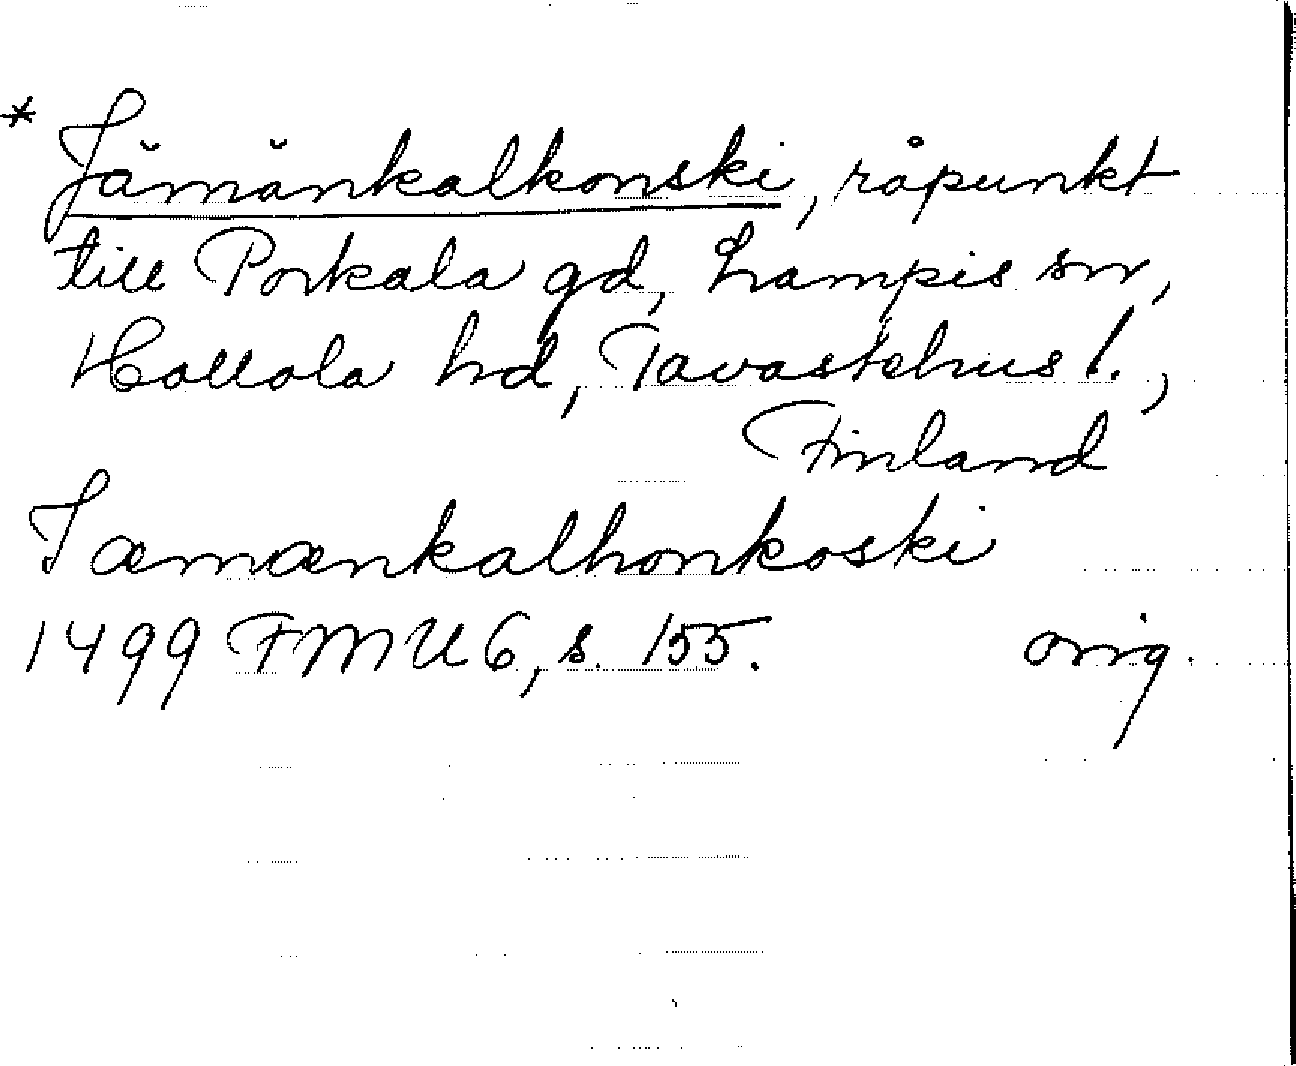 * Jämänkalkonski, råpunkt
till Porkala gd, Lampis sn,
Hollola hd, Tavastehus l.,
Finland
Jæmænkalhonkoski
1499 FMU 6, s. 155. orig.